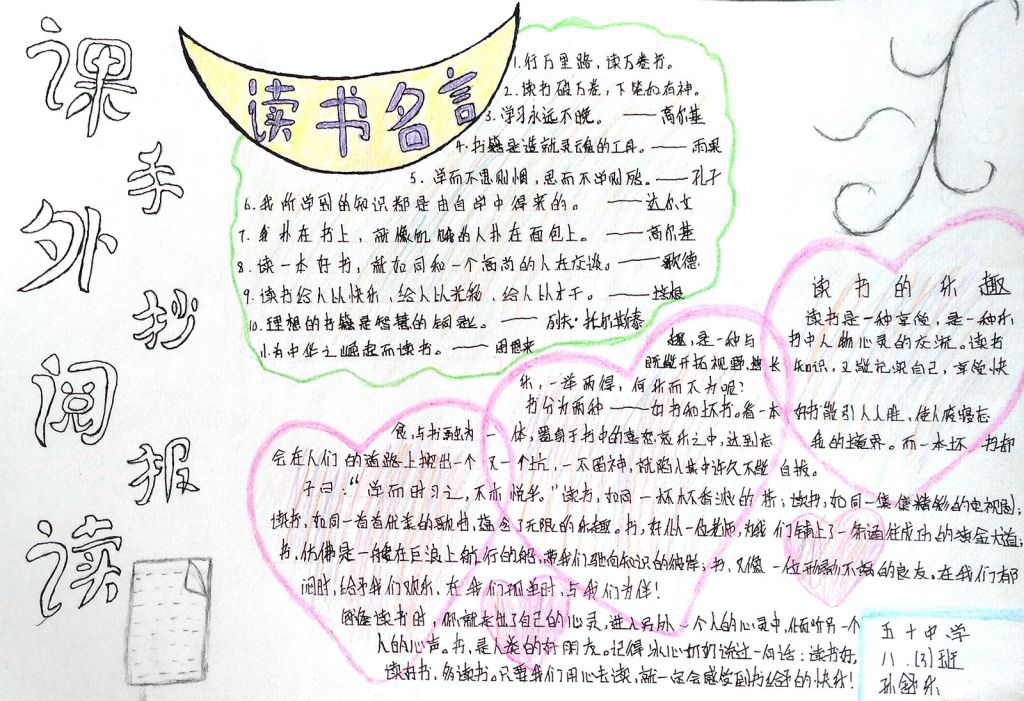 课外阅读
手抄报
读书名言
1. 行万里路，读万卷书。
2. 读书破万卷，下笔如有神。
3. 学习永远不晚。 ——高尔基
4. 书籍是造就灵魂的工具。——雨果
5. 学而不思则惘，思而不学则殆。——孔子
6. 我所学到的知识都是由自学中得来的。 ——达尔文
7. 我扑在书上，就像饥饿的人扑在面包上。 ——高尔基
8. 读一本好书，就如同和一个高尚的人在交谈。——歌德
9. 读书给人以快乐、给人以光彩、给人以才干。——培根
10. 理想的书籍是智慧的钥匙。 ——列夫·托尔斯泰
11. 为中华之崛起而读书。——周恩来
读书的乐趣
读书是一种享受，是一种乐
趣，是一种与书中人物心灵的交流。读书
既能开拓视野，增长知识，又能充实自己，享受快
乐，一举两得，何乐而不为呢？
书分为两种——好书和坏书。看一本好书能引人入胜，使人废寝忘
食，与书融为一体，置身于书中的喜怒哀乐之中，达到忘我的境界。而一本坏书却
会在人们的道路上挖出一个又一个坑，一不留神，就陷入其中许久不能自拔。
子曰：“学而时习之，不亦悦乎。”读书，如同一杯杯香浓的茶；读书，如同一集集精彩的电视剧；
读书，如同一首首优美的歌曲，蕴含了无限的乐趣。书，好似一位老师，为我们铺上了一条通往成功的黄金大道；
书，仿佛是一艘在巨浪上航行的船，带我们驶向知识的彼岸；书，又像一位形影不离的良友，在我们郁
闷时，给予我们欢乐，在我们孤单时，与我们为伴！
因为读书时，你就走出了自己的心灵，进入另外一个人的心灵中，倾听另一个
人的心声。书，是人类的好朋友。记得冰心奶奶说过一句话：读书好，
读好书，多读书。只要我们用心去读，就一定会感受到书给予的快乐！
五十中学
八.(3)班